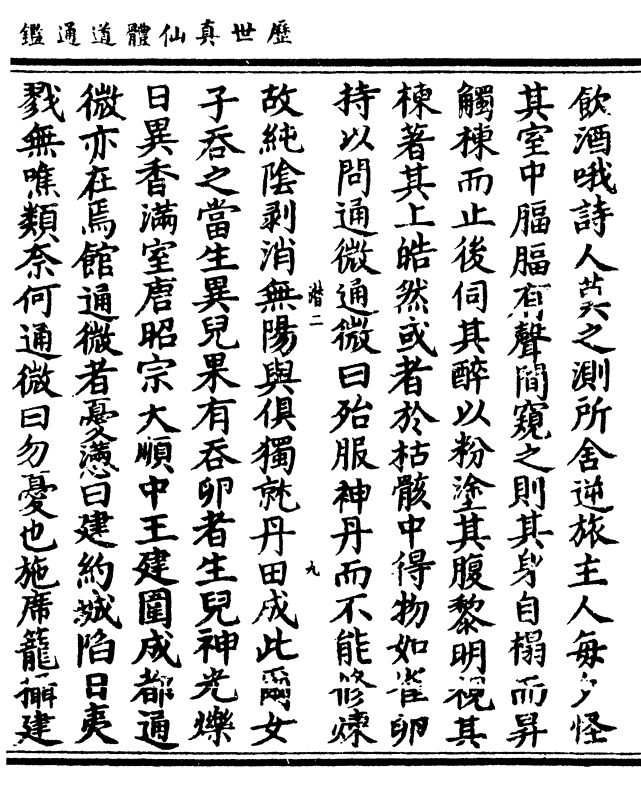 歷世真仙體道通鑑
飲酒哦詩人莫之測所舍逆旅主人每夕怪
其室中腷腷有聲間窺之則其身自榻而昇
觸棟而止後伺其醉以粉塗其腹黎明視其
棟著其上皓然或者於枯骸中得物如雀卵
持以問通微通微曰殆服神丹而不能修煉
潜二
九
故純陰剥消無陽與俱獨就丹田成此爾女
子吞之當生異兒果有吞卵者生兒神光爍
日異香滿室唐昭宗大順中王建圍成都通
微亦在焉館通微者憂懣曰建約城陷日夷
戮無噍類奈何通微曰勿憂也施席籠攝建